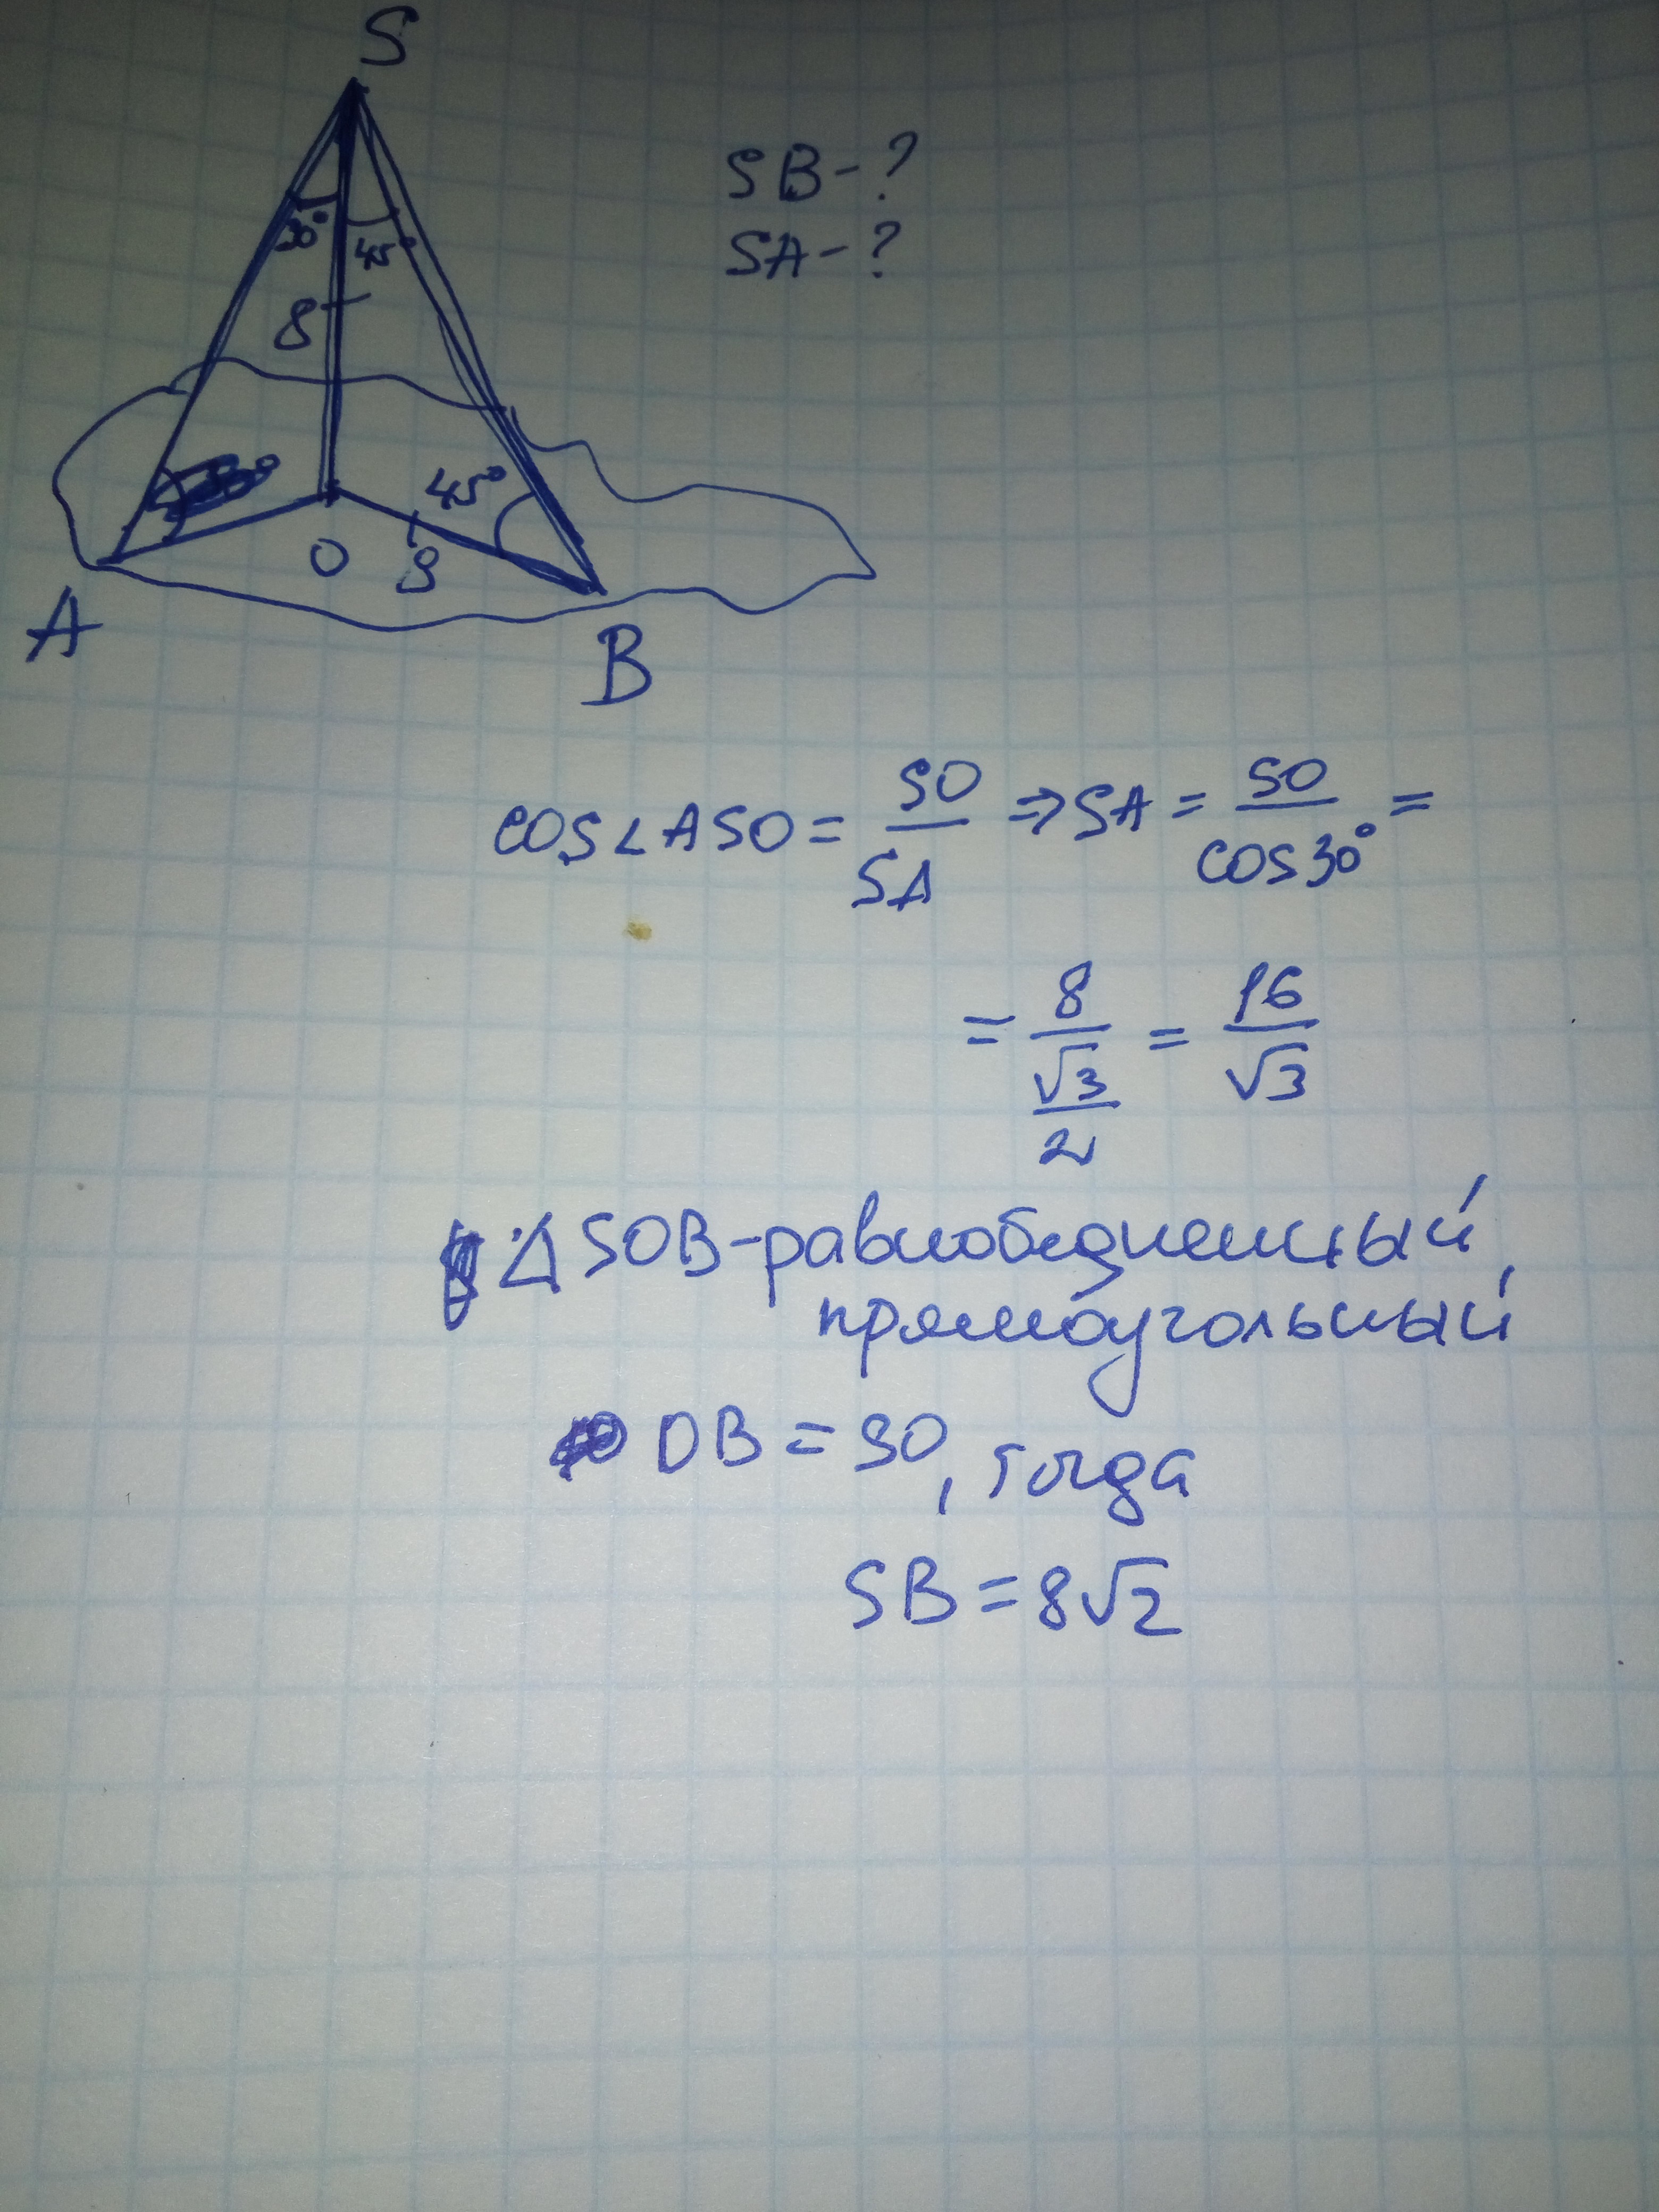 S
SB-?
SA-?
30°
45°
8
45°
O
8
A
B
cos∠ASO = SO/SA ⇒ SA = SO/cos30° =
= 8/(√3/2) = 16/√3
∆SOB-равнобедренный,
прямоугольный
OB = SO, тогда
SB = 8√2